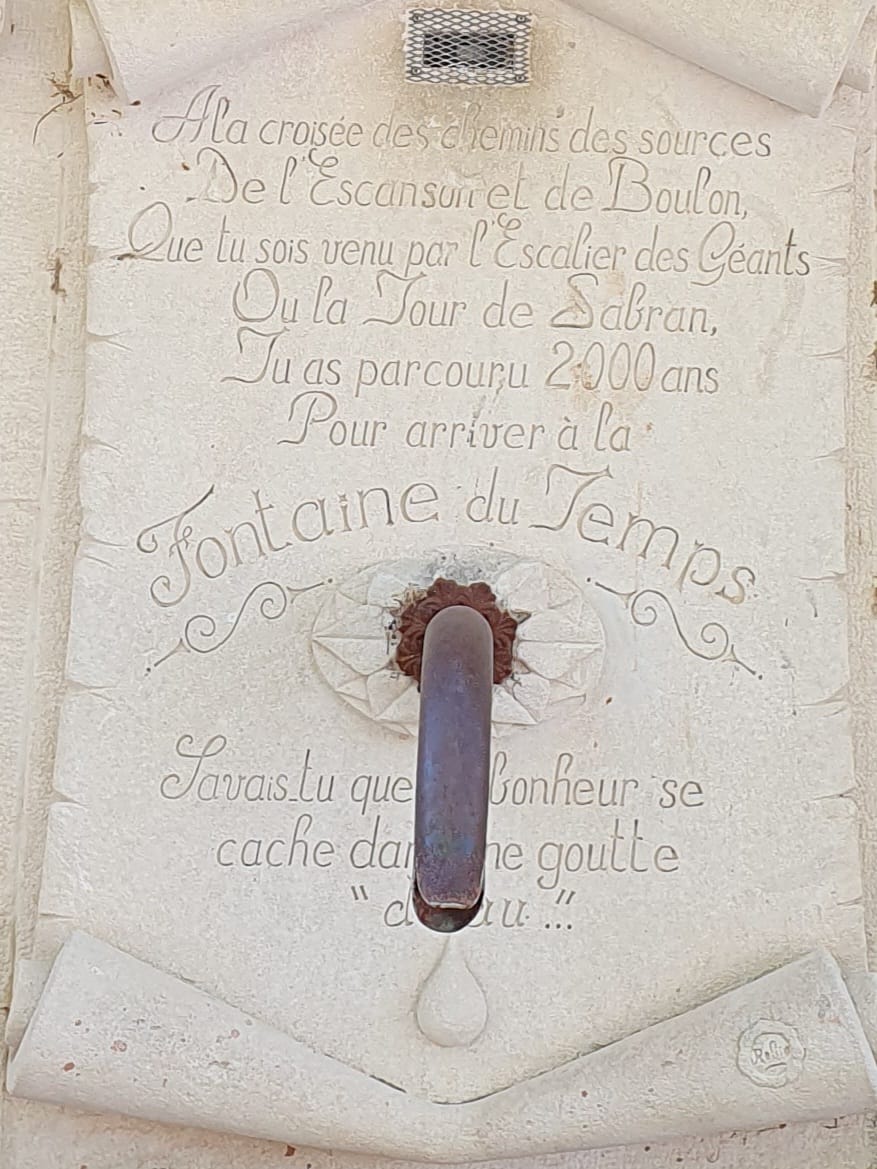 A la croisée des chemins des sources
De l'Escanson et de Boulon,
Que tu sois venu par l'Escalier des Géants
Ou la Tour de Sabran,
Tu as parcouru 2000 ans
Pour arriver à la
Fontaine du Temps
Savais-tu que bonheur se
cache goutte